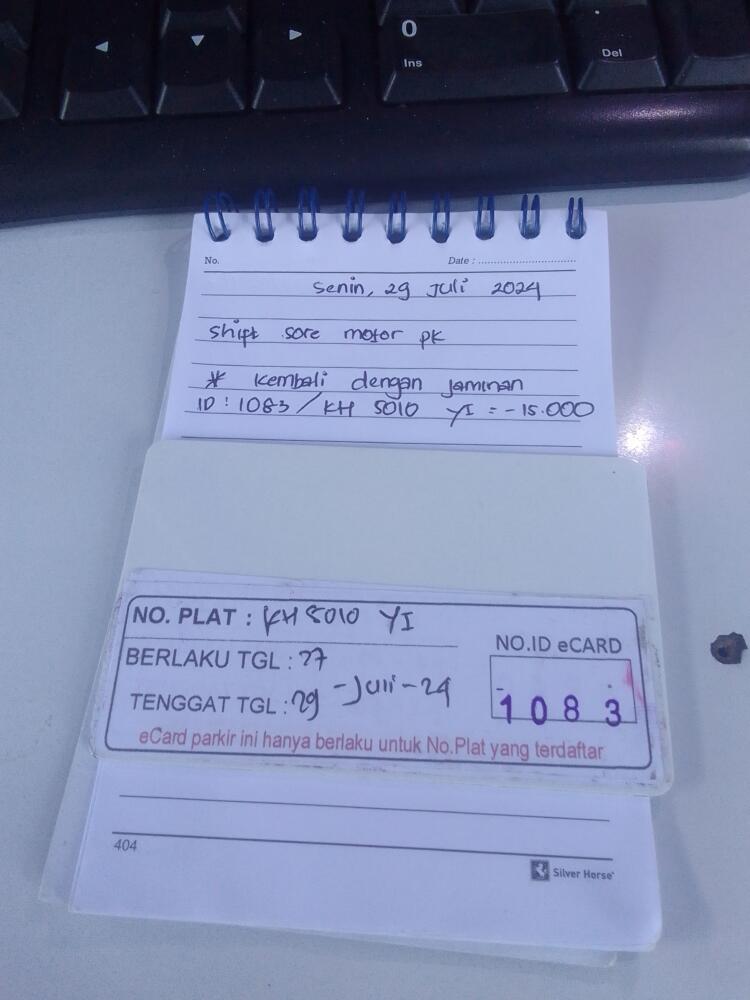 0
Ins
.
Del
No.
Date : ..............................
Senin, 29 Juli 2024
Shift sore motor pk
* Kembali dengan jaminan
ID : 1083 / KH 5010 YI = - 15.000
NO. PLAT : KH 5010 YI
BERLAKU TGL : 27
TENGGAT TGL : 29 - Juli - 24
NO.ID eCARD
1083
eCard parkir ini hanya berlaku untuk No.Plat yang terdaftar
404
Silver Horse